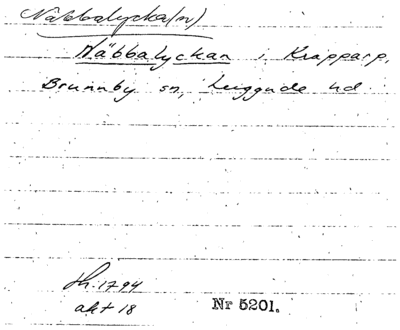 Näbbalycka(n)
Näbbalyckan i Krapparp,
Brunnby sn, Luggude hd.
sh. 1794
akt 18 Nr 5201.